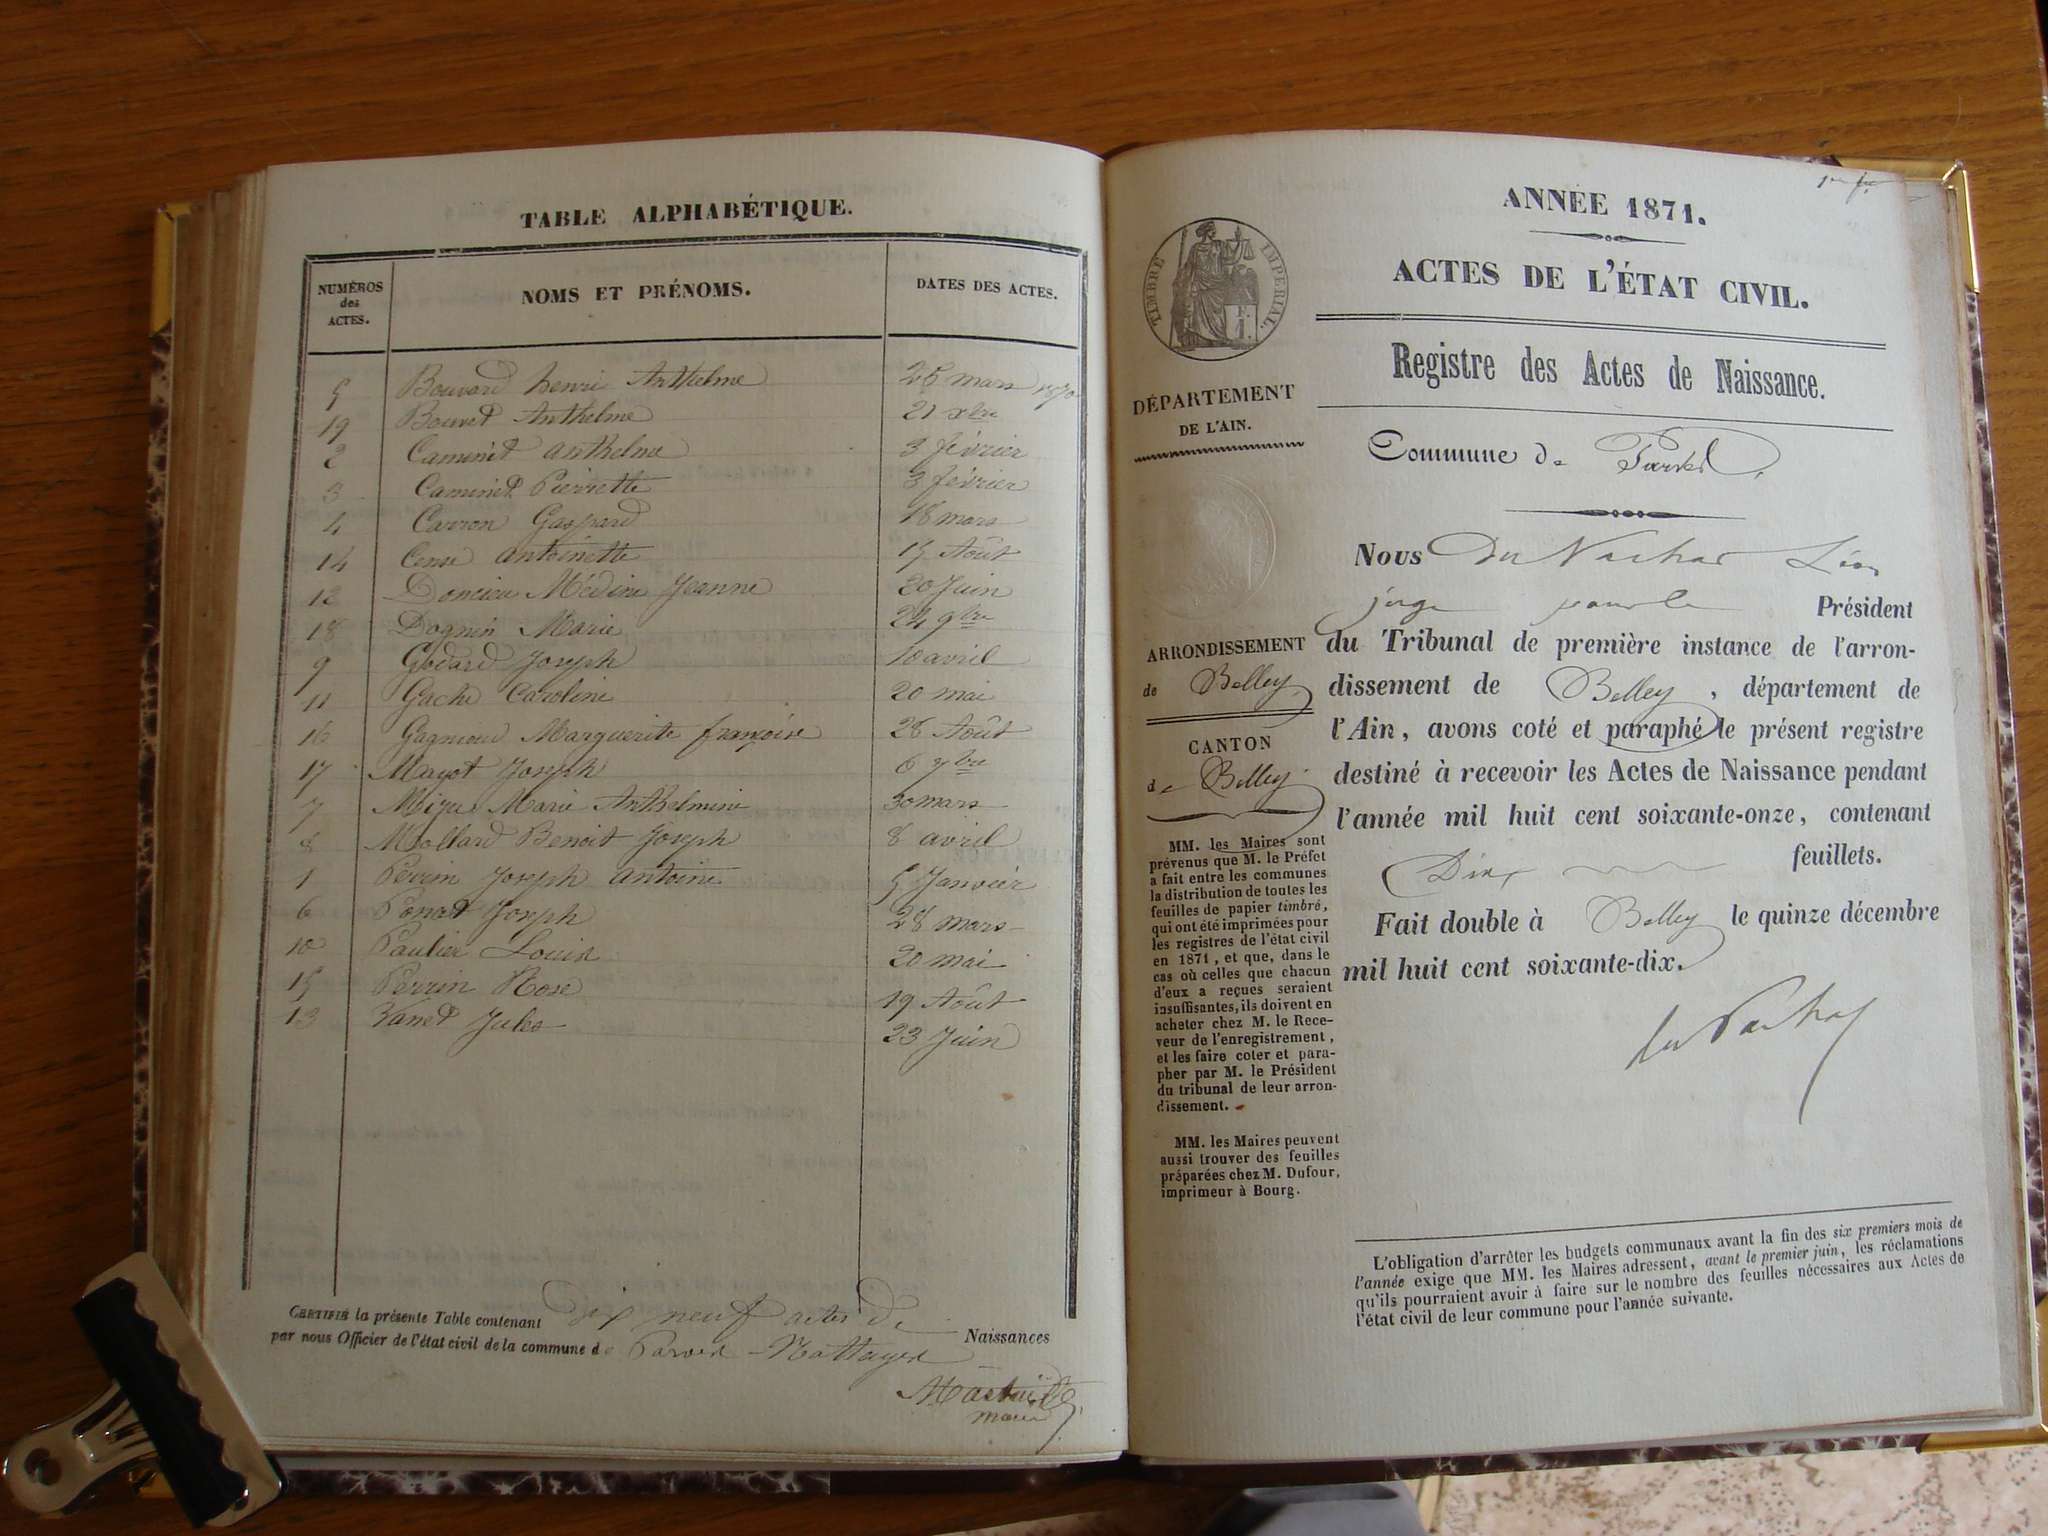 TABLE ALPHABÉTIQUE.
NUMÉROS des ACTES. NOMS ET PRÉNOMS. DATES DES ACTES.
5 Bouvard henri Anthelme 26 mars 1870
19 Bouvet Anthelme 21 xbre
2 Caminet anthelme 3 février
3 Caminet Pierrette 3 février
4 Carron Gaspard 18 mars
14 Cense antoinette 15 Août
12 Doncieu Médine Jeanne 20 Juin
18 Dognin Marie 24 9bre
9 Godard Joseph 18 avril
11 Gache Caroline 20 mai
16 Gagnioud Marguerite françoise 26 Août
17 Mayot Joseph 6 7bre
7 Marie Anthelmine 30 mars
8 Mollard Benoit Joseph 8 avril
1 Joseph antoine 5 Janvier
6 Ponat Joseph 28 mars
10 Paulier Louis 20 mai
15 Perrin Rose 19 Août
13 Jules 23 Juin
CERTIFIÉ la présente Table contenant dix neuf actes de Naissances
par nous Officier de l'état civil de la commune de Parves-Nattages
maire
1er
ANNÉE 1871.
ACTES DE L'ÉTAT CIVIL.
Registre des Actes de Naissance.
TIMBRE IMPERIAL.
DÉPARTEMENT
DE L'AIN.
Commune de Parves
Nous Léon
juge pour le Président
du Tribunal de première instance de l'arron-
dissement de Belley, département de
l'Ain, avons coté et paraphé le présent registre
destiné à recevoir les Actes de Naissance pendant
l'année mil huit cent soixante-onze, contenant
Dix feuillets.
Fait double à Belley le quinze décembre
mil huit cent soixante-dix.
ARRONDISSEMENT
de Belley
CANTON
de Belley
MM. les Maires sont
prévenus que M. le Préfet
a fait entre les communes
la distribution de toutes les
feuilles de papier timbré,
qui ont été imprimées pour
les registres de l'état civil
en 1871, et que, dans le
cas où celles que chacun
d'eux a reçues seraient
insuffisantes, ils doivent en
acheter chez M. le Rece-
veur de l'enregistrement,
et les faire coter et para-
pher par M. le Président
du tribunal de leur arron-
dissement.
MM. les Maires peuvent
aussi trouver des feuilles
préparées chez M. Dufour,
imprimeur à Bourg.
L'obligation d'arrêter les budgets communaux avant la fin des six premiers mois de
l'année exige que MM. les Maires adressent, avant le premier juin, les réclamations
qu'ils pourraient avoir à faire sur le nombre des feuilles nécessaires aux Actes de
l'état civil de leur commune pour l'année suivante.